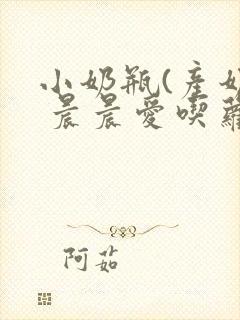 小奶瓶(產奶
晨晨愛喫蘿
阿茹